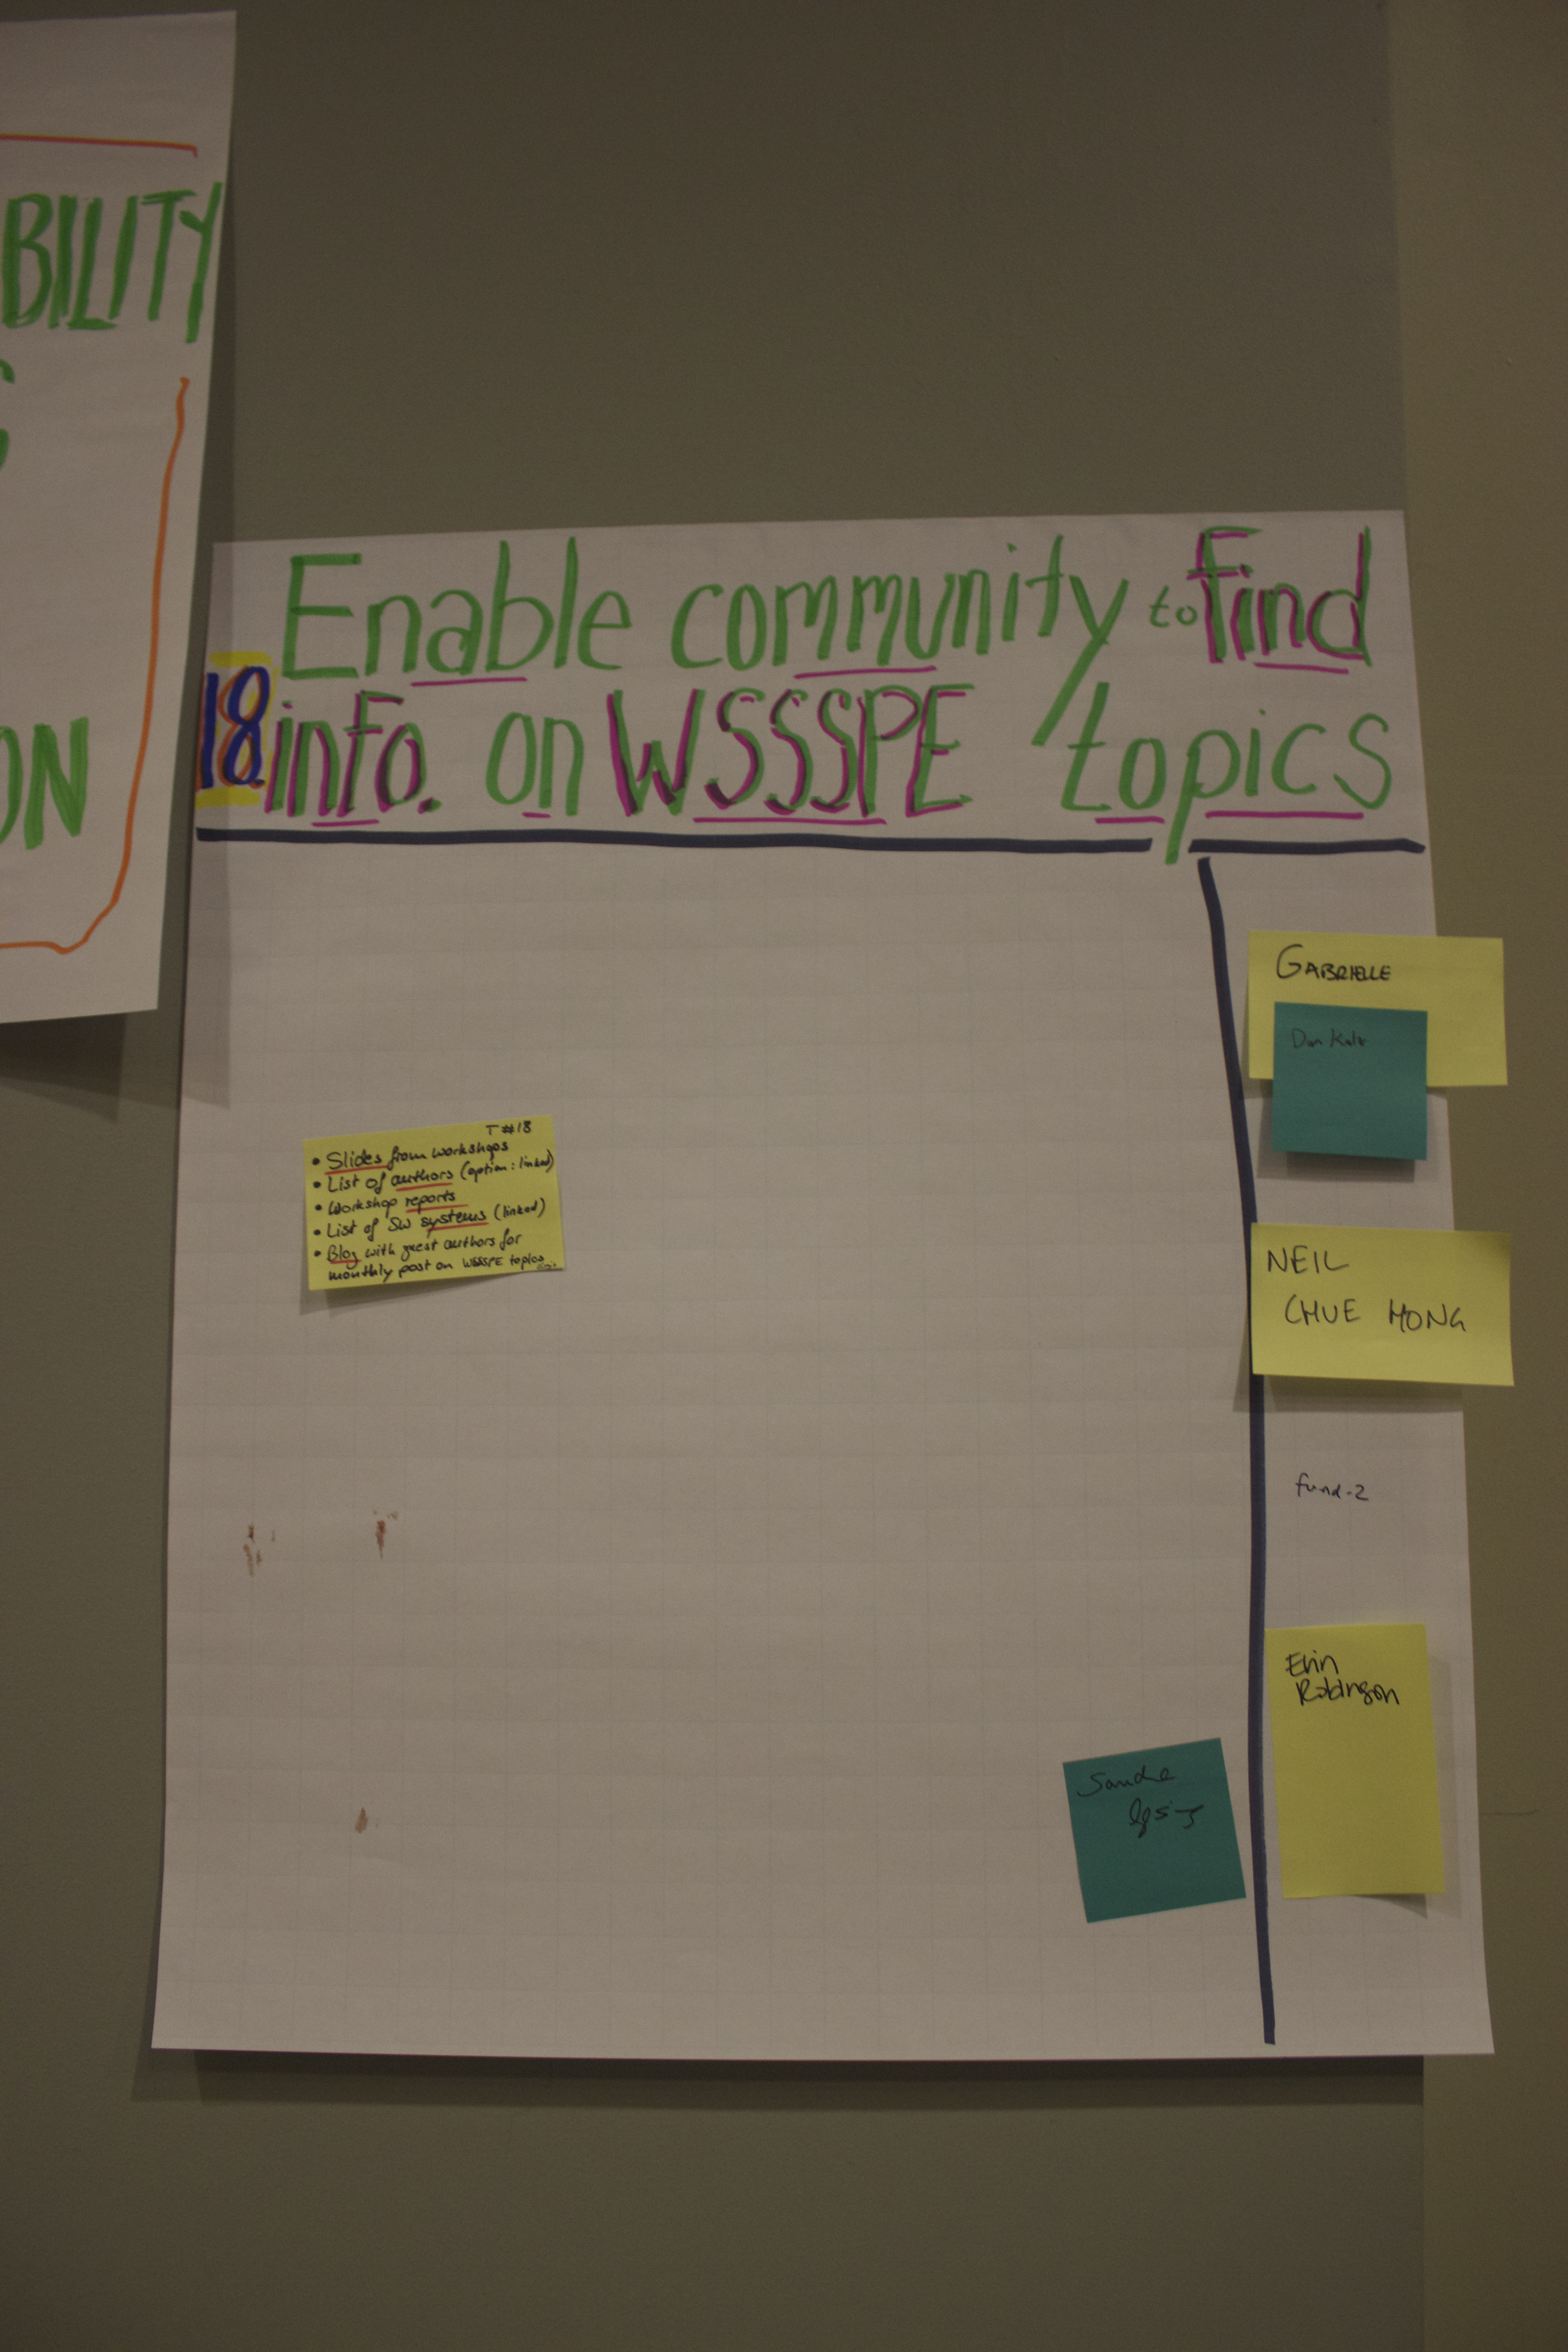 BILITY
ON
Enable community to find
18 info. on WSSSPE topics
T #18
• Slides from workshops
• List of authors (option: linked)
• Workshop reports
• List of SW systems (linked)
• Blog with guest authors for
monthly post on WSSSPE topics
GABRIELLE
Dan Katz
NEIL
CHUE HONG
fund-2
Erin
Robinson
Sandra